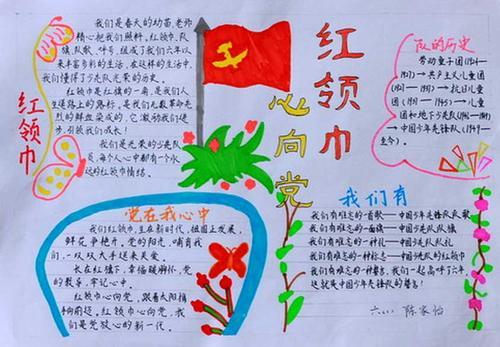 红领巾
心向党
红领巾
我们是春天的幼苗,老师
精心把我们照料。红领巾、队
旗、队歌、呼号,组成了我们六年以
来丰富多彩的生活,在这样的生活中
我们懂得了少先队光荣的历史。
红领巾是红旗的一角,是我们人
生道路上的路标,是我们无数革命先
烈的鲜血染成的,它激励我们进
步,引领我们成长!
我们是光荣的少先队
员,每个人心中都有一个永
远的红领巾情结。
队的历史
劳动童子团(1924—
1927)→共产主义儿童团
(1927—1937)→抗日儿童
团(1937—1945)→儿童
团和地下少先队(1945—1949)
→中国少年先锋队(1949—
至今)。
党在我心中
我们红领巾,生在新时代,祖国正发展,
鲜花争艳开。党的阳光,哺育我
们,一双双大手送来关爱。
长在红旗下,幸福暖胸怀。党
的教导,牢记心中。
红领巾心向党,跟着太阳旗
向前迈。红领巾心向党,我
们是党放心的新一代。
我们有
我们有难忘的一首歌——中国少年先锋队队歌
我们有难忘的一面旗——中国少年先锋队队旗
我们有难忘的一种礼——中国少年先锋队队礼
我们有难忘的一种标志——中国少先队的红领巾
我们有难忘的一种誓言,我们一起高呼了六年,
这就是中国少年先锋队的誓言!
陈家怡